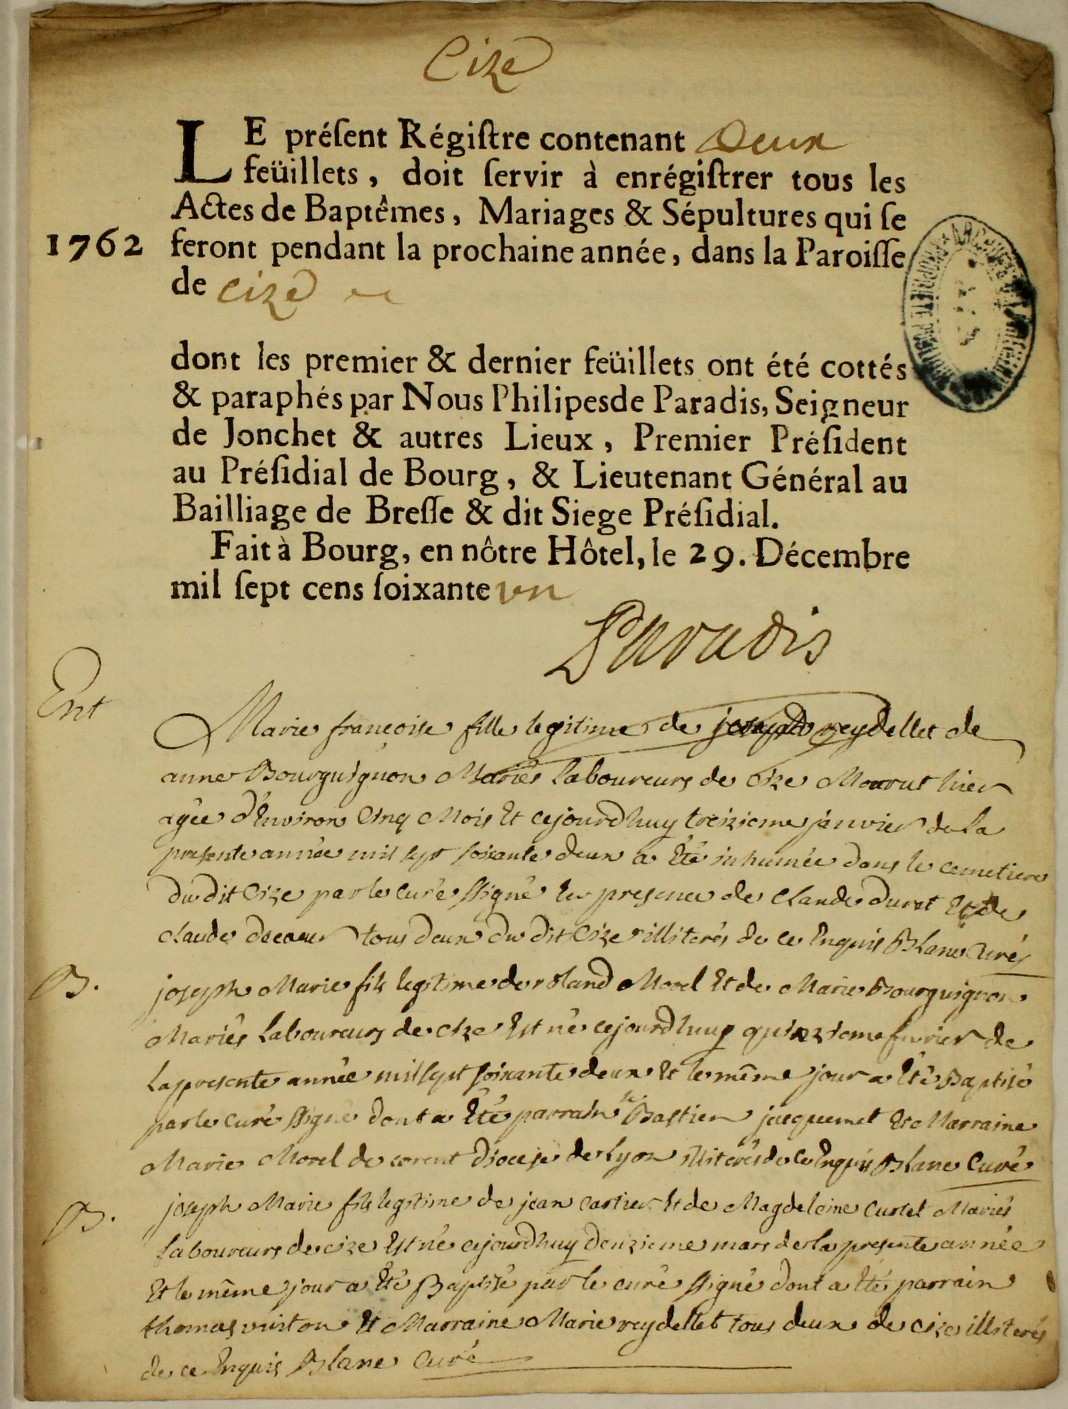 Cize
LE préſent Régiſtre contenant Deux
feüillets, doit ſervir à enrégiſtrer tous les
Actes de Baptêmes, Mariages & Sépultures qui ſe
1762 feront pendant la prochaine année, dans la Paroiſſe
de cize
dont les premier & dernier feüillets ont été cottés
& paraphés par Nous Philipes de Paradis, Seigneur
de Jonchet & autres Lieux, Premier Préſident
au Préſidial de Bourg, & Lieutenant Général au
Bailliage de Breſſe & dit Siege Préſidial.
Fait à Bourg, en nôtre Hôtel, le 29. Décembre
mil ſept cens ſoixante vn
Paradis
Ent
Marie françoise fille legitime de joseph reydellet de
anne Bourguignon Mariés Laboureurs de cize Mourut hier
agée d'Environ Cinq Mois Et cejourdhuy treizieme janvier de La
presente année mil sept soixante deux a Eté inhumée dans le cemetiere
du dit Cize par le curé ssigné En presence de Claude durat Et de
claude tous deux du dit Cize illiterés de ce Enquis Blanc Curé
B.
joseph Marie fils legitime de roland Morel Et de Marie Bourguignon
Mariés Laboureurs de cize Est né cejourdhuy quinzieme fevrier de
La presente année mil sept soixante deux Et le même jour a Eté Baptisé
par le curé ssigné dont a Eté parrain Bastien jacquemet Et Marraine
Marie Morel de corent diocese de Lyon illiterés de ce Enquis Blanc Curé
B.
joseph Marie fils legitime de jean cartier Et de Magdeleine Curtet Mariés
Laboureurs de cize Est né cejourdhuy douzieme mars de la presente année
Et le même jour a Eté Baptisé par le curé ssigné dont a Eté parrain
thomas Et Marraine Marie reydellet tous deux de cize illiterés
de ce Enquis Blanc Curé